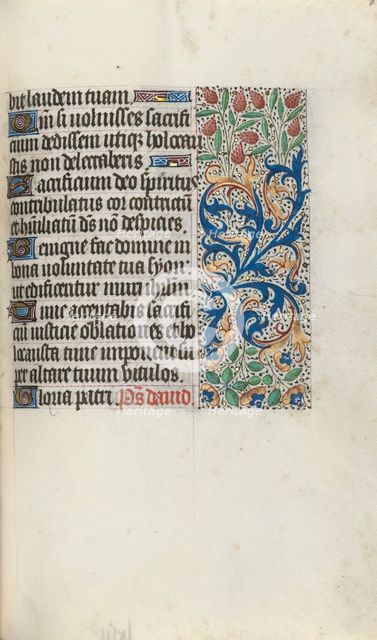 bit laudem tuam
Qm̄ si voluisses sacrifi
cium dedissem utiqꝫ holocau
stis non delectaberis
Sacrificium deo spiritus
contribulatus cor contritum
et humiliatū dn̄s nō despicies
Benigne fac domine in
bona voluntate tua syon
ut edificentur muri iherlm
Tunc acceptabis sacrifi
ciū iusticie oblationes et ho
locausta tunc imponent su
per altare tuum vitulos.
Gloria patri. Ps̄ dauid.
Heritage
Heritage
Heritage
Heritage